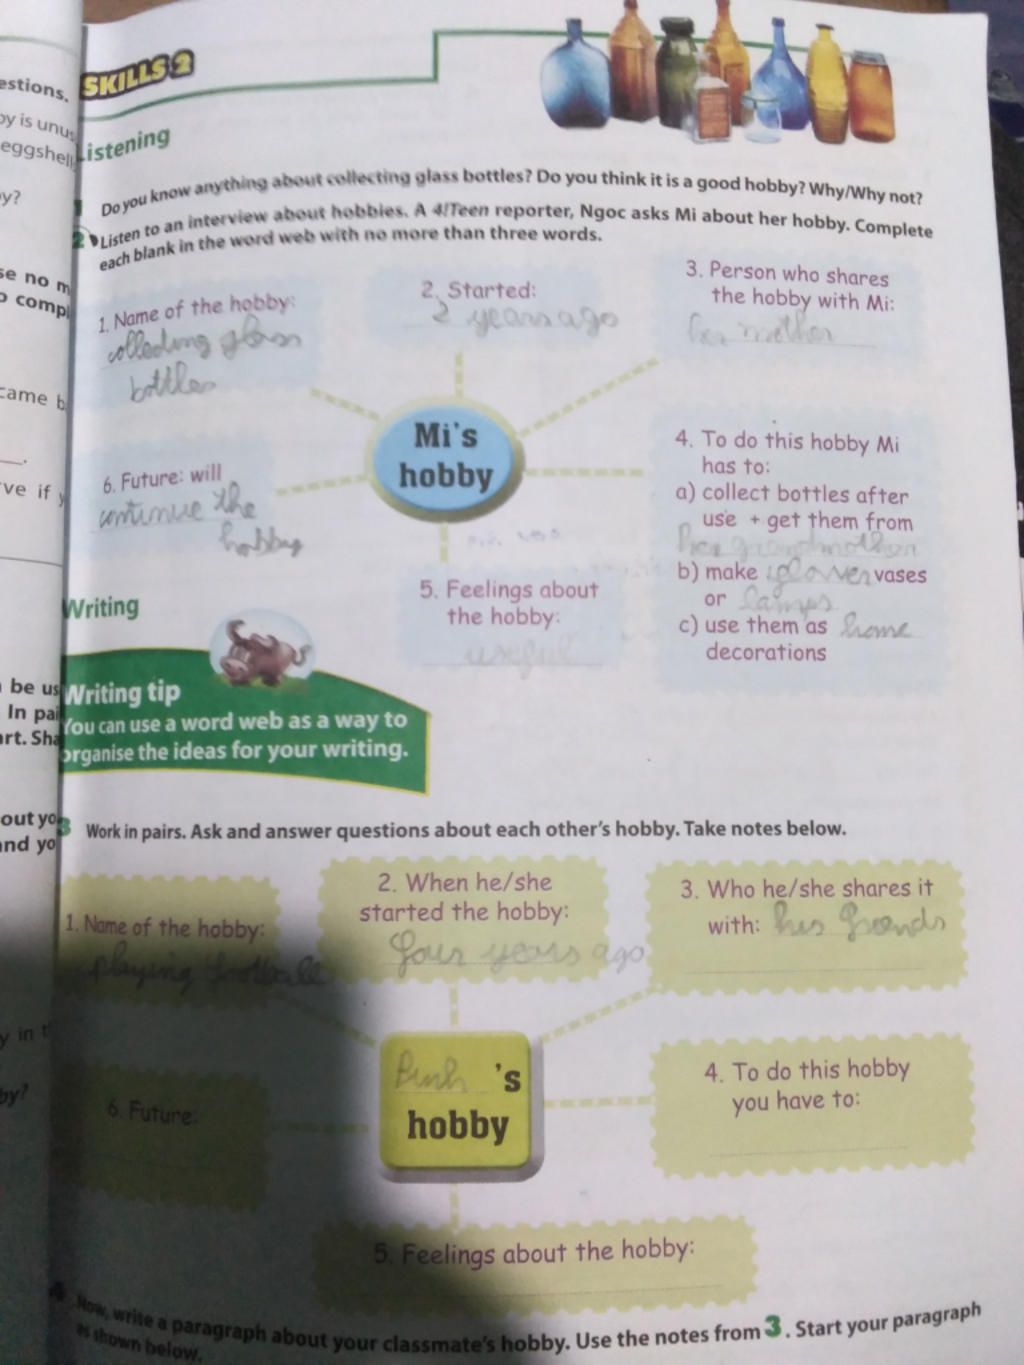 estions.
SKILLS 2
by is unus
eggshell
Listening
y?
1 Do you know anything about collecting glass bottles? Do you think it is a good hobby? Why/Why not?
2 Listen to an interview about hobbies. A 4!Teen reporter, Ngoc asks Mi about her hobby. Complete
each blank in the word web with no more than three words.
se no m
o compl
1. Name of the hobby:
collecting glass
bottles
2. Started:
2 years ago
3. Person who shares
the hobby with Mi:
her mother
came b
ve if y
Mi's
hobby
4. To do this hobby Mi
has to:
a) collect bottles after
use + get them from
her grandmother
b) make vases
or lamps
c) use them as home
decorations
6. Future: will
continue the
hobby
5. Feelings about
the hobby:
useful
Writing
be us
In pai
art. Sha
Writing tip
You can use a word web as a way to
organise the ideas for your writing.
out yo
and yo
3 Work in pairs. Ask and answer questions about each other's hobby. Take notes below.
1. Name of the hobby:
playing football
2. When he/she
started the hobby:
four years ago
3. Who he/she shares it
with: his friends
y in t
by?
Binh 's
hobby
4. To do this hobby
you have to:
6. Future:
5. Feelings about the hobby:
4 Now, write a paragraph about your classmate's hobby. Use the notes from 3. Start your paragraph
as shown below.